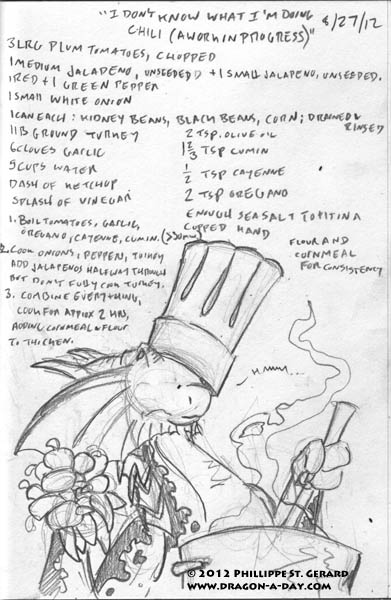 "I DON'T KNOW WHAT I'M DOING
CHILI (A WORK IN PROGRESS)"
8/27/12
3 LRG PLUM TOMATOES, CHOPPED
1 MEDIUM JALAPENO, UNSEEDED + 1 SMALL JALAPENO, UNSEEDED.
1 RED + 1 GREEN PEPPER
1 SMALL WHITE ONION
1 CAN EACH: KIDNEY BEANS, BLACK BEANS, CORN; DRAINED & RINSED
1 LB GROUND TURKEY
6 CLOVES GARLIC
5 CUPS WATER
DASH OF KETCHUP
SPLASH OF VINEGAR
2 TSP. OLIVE OIL
1 2/3 TSP CUMIN
1/2 TSP CAYENNE
2 TSP OREGANO
ENOUGH SEA SALT TO FIT IN A
CUPPED HAND
FLOUR AND
CORNMEAL
FOR CONSISTENCY
1. BOIL TOMATOES, GARLIC,
OREGANO, CAYENNE, CUMIN. (>30MIN)
2. COOK ONIONS, PEPPER, TURKEY
ADD JALAPENOS HALFWAY THROUGH
BUT DON'T FULLY COOK TURKEY.
3. COMBINE EVERYTHING,
COOK FOR APPOX 2 HRS,
ADDING CORNMEAL & FLOUR
TO THICKEN.
HMMM...
© 2012 PHILLIPPE ST. GERARD
WWW.DRAGON-A-DAY.COM